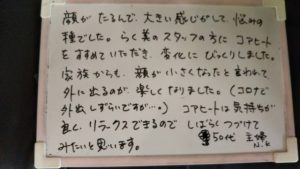 顔がたるんで、大きい感じがして、悩みの
種でした。らく美のスタッフの方に コアヒート
をすすめていただき、変化にびっくりしました。
家族からも、顔が小さくなったと言われて
外に出るのが、楽しくなりました。(コロナで
外出しずらいですが…。) コアヒートは気持ちが
良く、リラックスできるので しばらくつづけて
みたいと思います。
50代 主婦
N.K